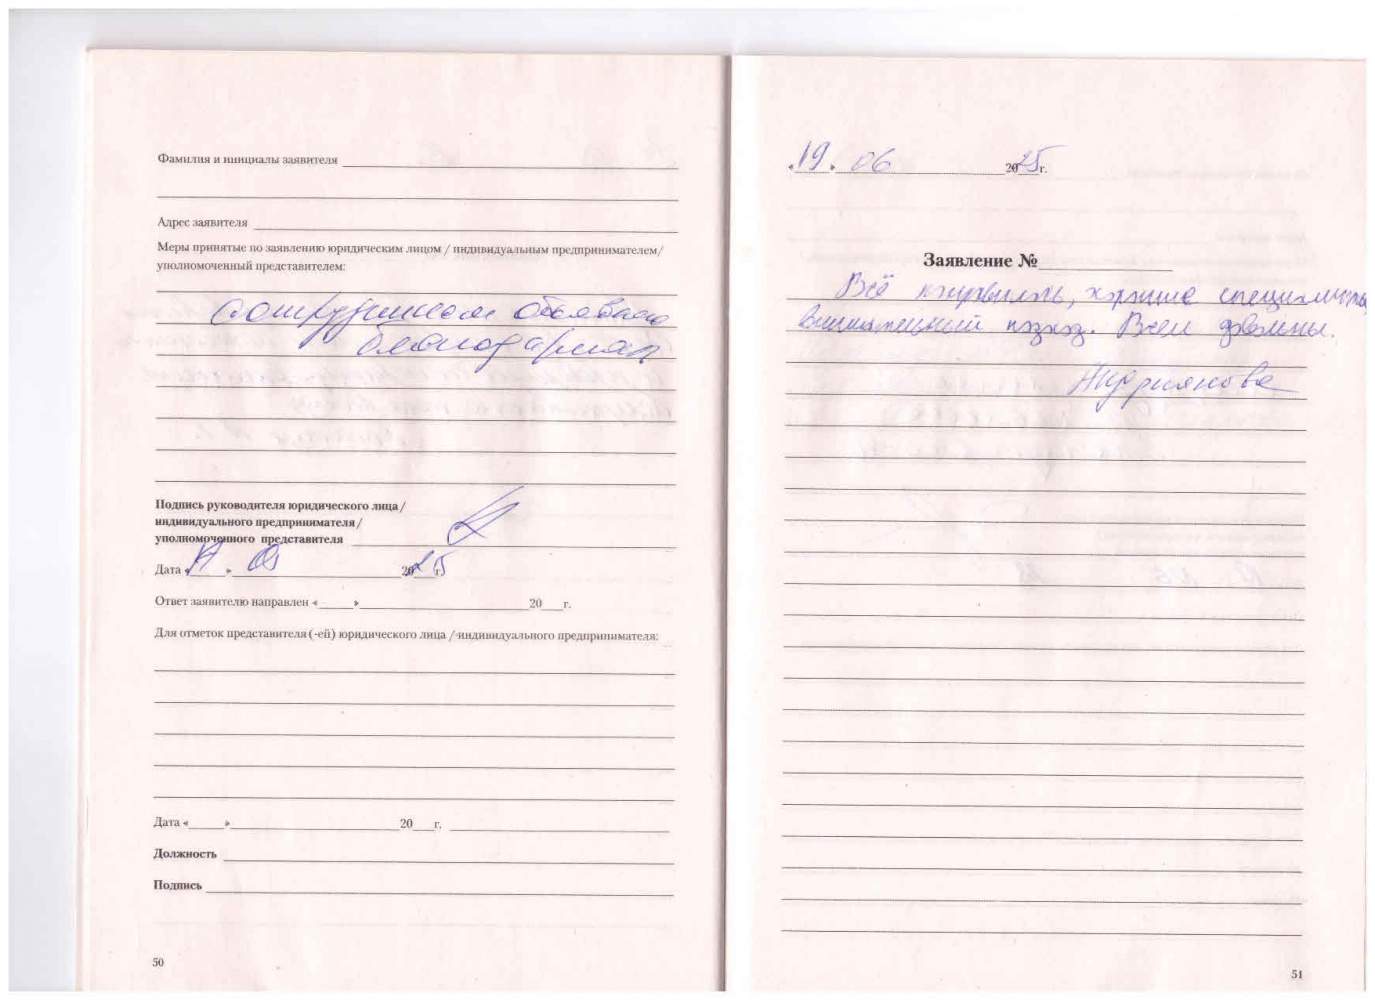 Фамилия и инициалы заявителя
Адрес заявителя
Меры принятые по заявлению юридическим лицом / индивидуальным предпринимателем/
уполномоченный представителем:
сотрудникам объявлена
благодарность
Подпись руководителя юридического лица /
индивидуального предпринимателя /
уполномоченного представителя
Дата « » 2025 г.
Ответ заявителю направлен « » 20 г.
Для отметок представителя (-ей) юридического лица / индивидуального предпринимателя:
Дата « » 20 г.
Должность
Подпись
50
«19» 06 2025 г.
Заявление №
Всё понравилось, хорошие специалисты,
внимательный подход. Всем довольны.
Андриянова
51